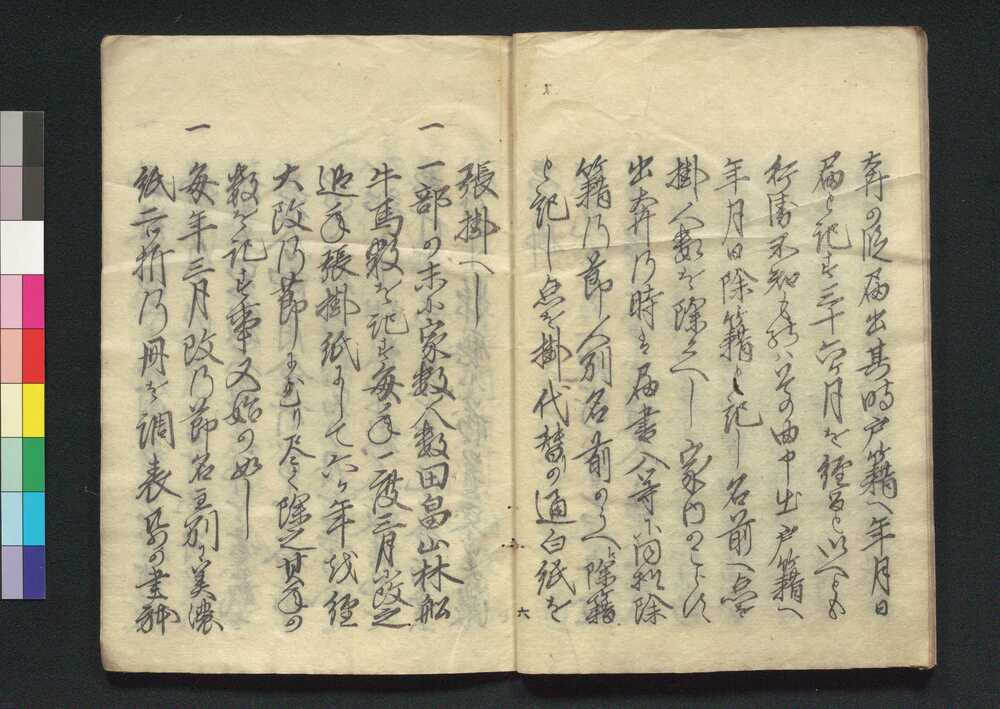 奔の段届出其時戸籍へ年月日
届と記す三十六ケ月を経るといへとも
行衛不知ものハ其由申出戸籍へ
年月日除籍と記し名前へ点を
掛人数を除くへし家内のこらす
出奔の時は届書へ等同し除
籍の節人別名前のうへ除籍
と記し点を掛代替の通白紙を
張掛へし
一 一部の末小家数人数田畠山林船
牛馬数を記す毎年一度三月改之
追年張掛紙にして六ケ年或経
大改の節に至り尽く除之其年の
数を記す事又始の如し
一 毎年三月改の節名主別に美濃
紙二ツ折の冊を調表紙の書神
六